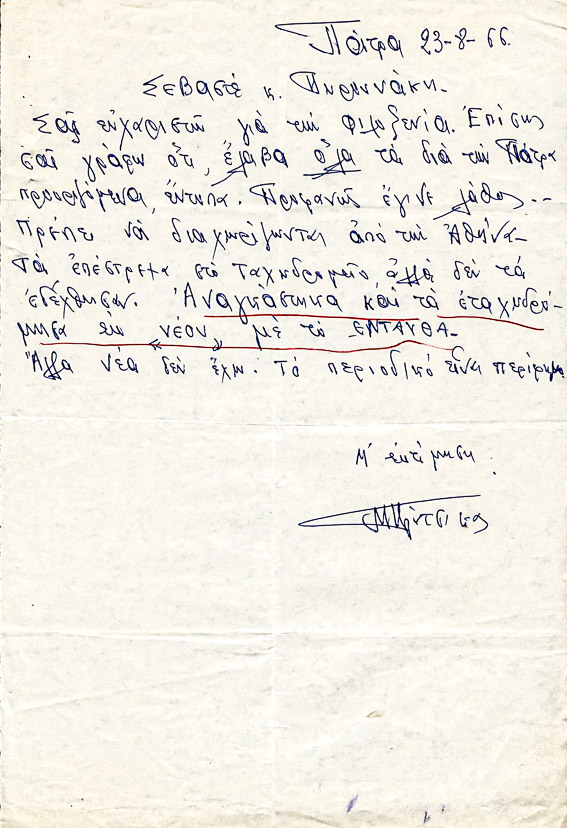 Πάτρα 23-8-66.
Σεβαστέ κ.
Σας εὐχαριστῶ γιὰ τὴν φιλοξενία. Ἐπίσης
σας γράφω ὅτι, ἔλαβα ὅλα τὰ διὰ τὴν Πάτρα
προοριζόμενα ἔντυπα. Προφανῶς ἔγινε λάθος...
Πρέπει νὰ διαχωρίζωνται ἀπὸ τὴν Ἀθήνα-
Τὰ ἐπέστρεψα στὸ ταχυδρομεῖο, ἀλλὰ δὲν τὰ
ἐδέχθησαν. Ἀναγκάστηκα καὶ τὰ ἐταχυδρό-
μησα ἐκ νέου μὲ τὸ ΕΝΤΑΥΘΑ-
Ἄλλα νέα δὲν ἔχω. Τὸ περιοδικὸ εἶναι περίφημο
Μ' ἐκτίμηση